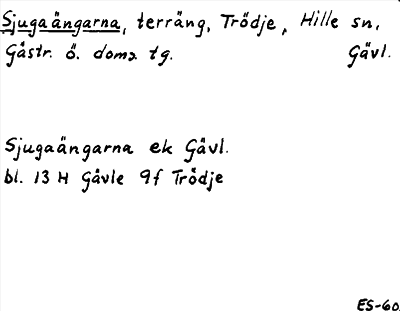 Sjugaängarna, terräng, Trödje, Hille sn,
Gästr. ö. doms. tg. Gävl.
Sjugaängarna ek Gävl.
bl. 13 H Gävle 9f Trödje
ES-60